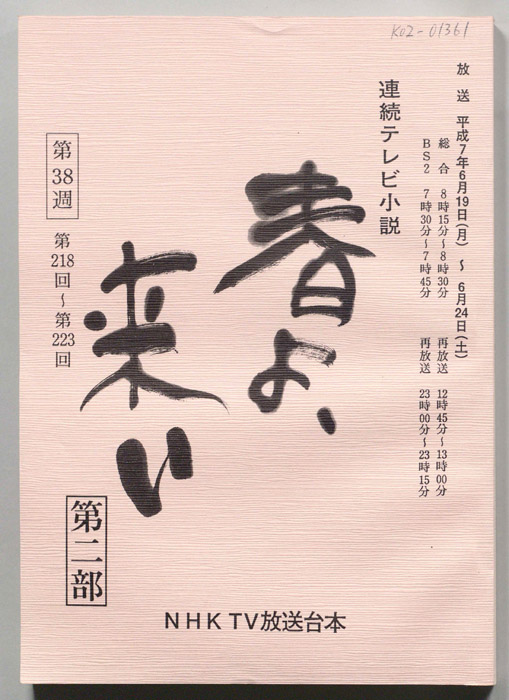 K02-01361
放送 平成7年6月19日(月) ～ 6月24日(土)
総合 8時15分～8時30分 再放送 12時45分～13時00分
BS2 7時30分～7時45分 再放送 23時00分～23時15分
連続テレビ小説
春よ、
来い
第38週
第218回～第223回
第二部
NHK TV放送台本